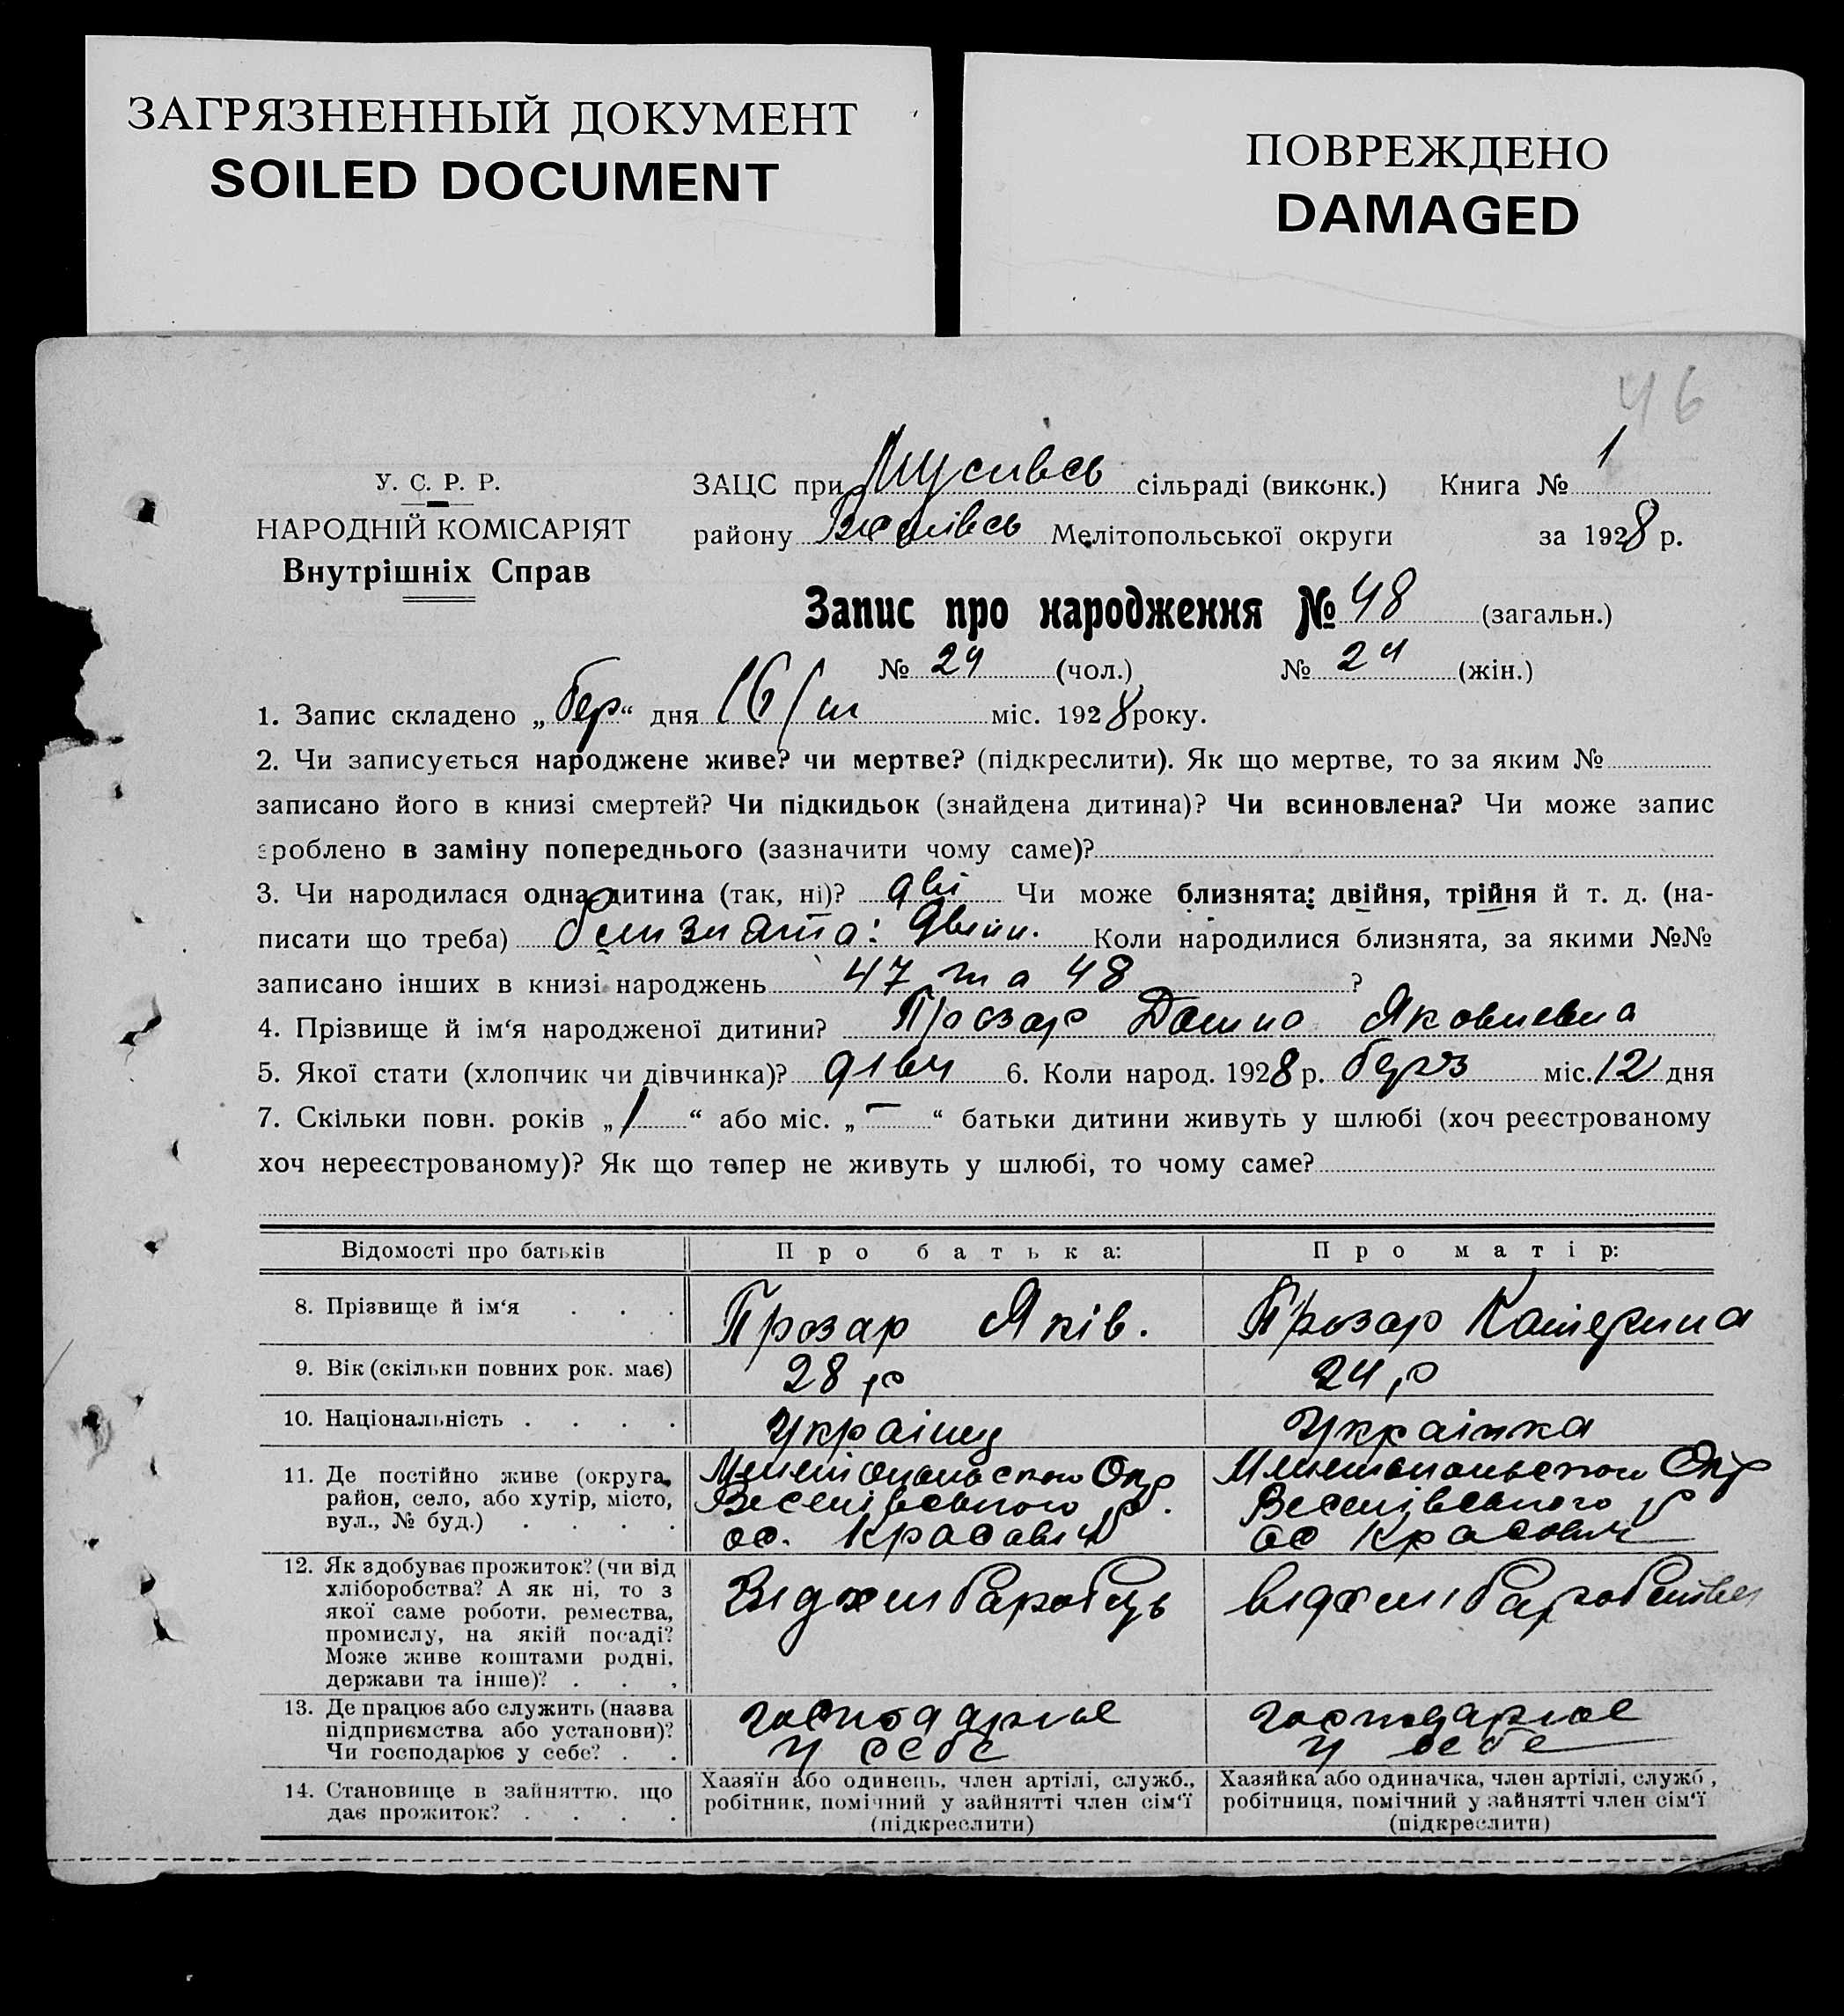 ЗАГРЯЗНЕННЫЙ ДОКУМЕНТ
SOILED DOCUMENT
ПОВРЕЖДЕНО
DAMAGED
46
У. С. Р. Р.
НАРОДНІЙ КОМІСАРІЯТ
Внутрішніх Справ
ЗАЦС при сільраді (виконк.) Книга № 1
району Веселівсь Мелітопольської округи за 1928 р.
Запис про народження № 48 (загальн.)
№ 24 (чол.) № 24 (жін.)
1. Запис складено „бер“ дня 16 міс. 1928 року.
2. Чи записується народжене живе? чи мертве? (підкреслити). Як що мертве, то за яким №
записано його в книзі смертей? Чи підкидьок (знайдена дитина)? Чи всиновлена? Чи може запис
зроблено в заміну попереднього (зазначити чому саме)?
3. Чи народилася одна дитина (так, ні)? дві Чи може близнята: двійня, трійня й т. д. (на-
писати що треба) близнята: двійн. Коли народилися близнята, за якими №№
записано інших в книзі народжень 47 та 48 ?
4. Прізвище й ім‘я народженої дитини? Прозар Яковлевна
5. Якої стати (хлопчик чи дівчинка)? дівч 6. Коли народ. 1928 р. берз міс. 12 дня
7. Скільки повн. років „1“ або міс. „—“ батьки дитини живуть у шлюбі (хоч реєстрованому
хоч нереєстрованому)? Як що тепер не живуть у шлюбі, то чому саме?
Відомості про батьків Про батька: Про матір:
8. Прізвище й ім‘я . . . Прозар Яків. Прозар Катерина
9. Вік (скільки повних рок. має) 28 р 24 р
10. Національність . . . . Українц Українка
11. Де постійно живе (округа, Мелітопольскои Окр Мелитопольскои Окр
район, село, або хутір, місто, Веселівського р. Веселівського р
вул., № буд.) . . . . ос. Красавич ос Красович
12. Як здобуває прожиток? (чи від
хліборобства? А як ні, то з
якої саме роботи, ремества,
промислу, на якій посаді?
Може живе коштами родні,
держави та інше)? . . .
13. Де працює або служить (назва господарює господарює
підприємства або установи)?
Чи господарює у себе? . . у себе у себе
14. Становище в зайняттю, що Хазяїн або одинець, член артілі, служб., Хазяйка або одиначка, член артілі, служб ,
дає прожиток? . . . . робітник, помічний у зайнятті член сім‘ї робітниця, помічний у зайнятті член сім‘ї
(підкреслити) (підкреслити)